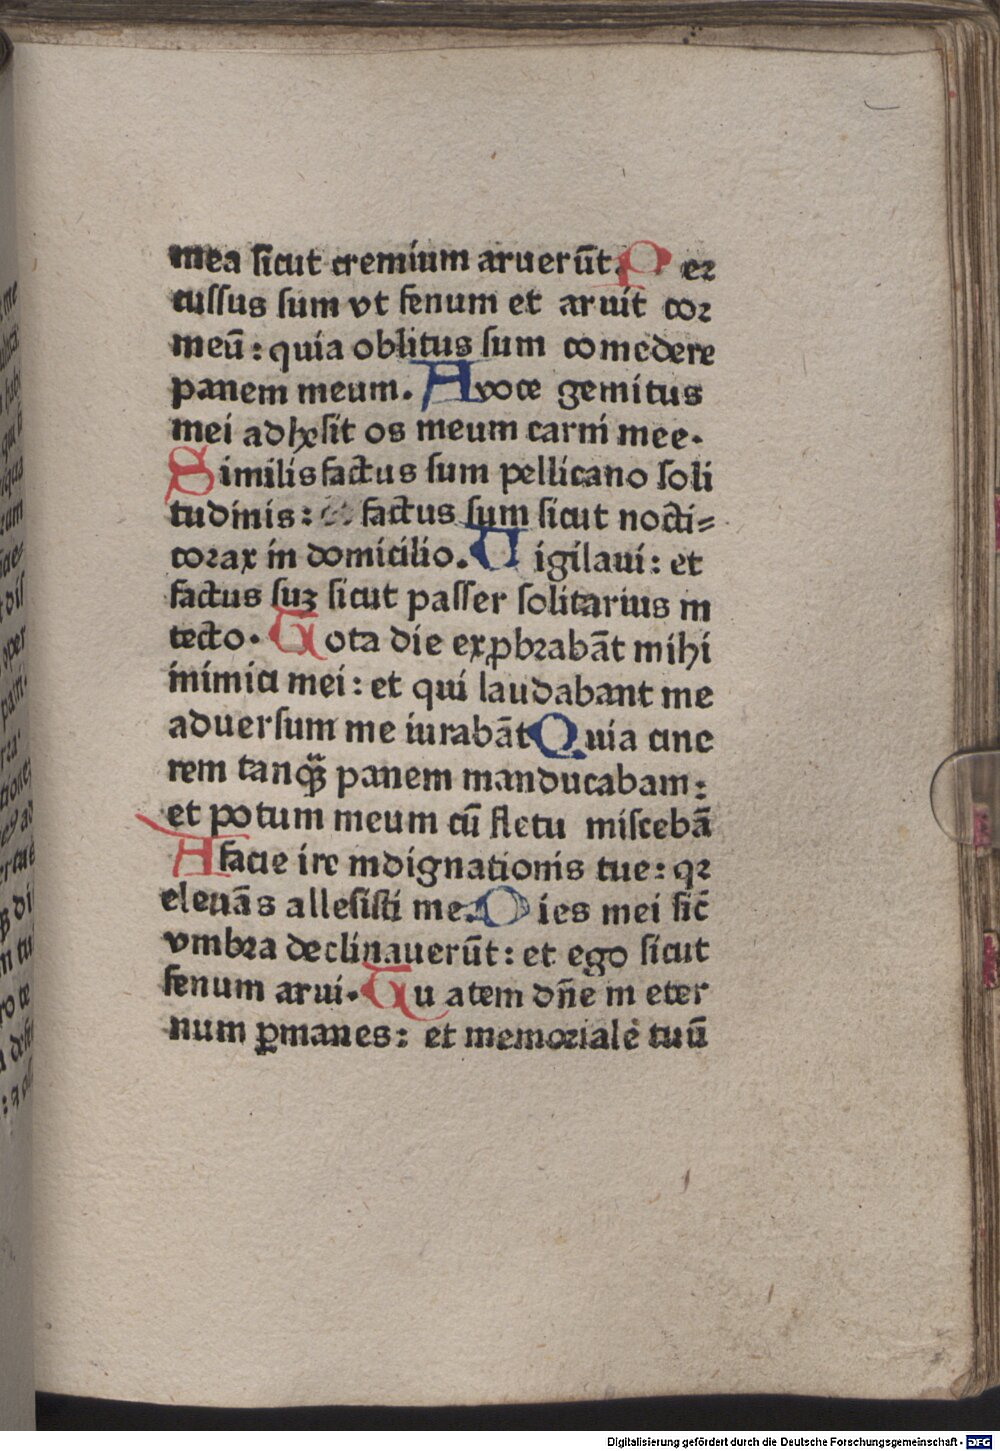 mea sicut cremium aruerūt. Per
cussus sum vt fenum et aruit cor
meū: quia oblitus sum comedere
panem meum. A voce gemitus
mei adhesit os meum carni mee.
Similis factus sum pellicano soli
tudinis: et factus sum sicut nocti=
corax in domicilio. Uigilaui: et
factus suꝫ sicut passer solitarius in
tecto. Tota die exꝓbrabāt mihi
inimici mei: et qui laudabant me
aduersum me iurabāt Quia cine
rem tanqꝫ panem manducabam:
et potum meum cū fletu miscebā
A facie ire indignationis tue: qꝛ
eleuās allesisti me. Dies mei sic̄
vmbra declinauerūt: et ego sicut
fenum arui. Tu atem dn̄e in eter
num ꝑmanes: et memoriale tuū
Digitalisierung gefördert durch die Deutsche Forschungsgemeinschaft - DFG